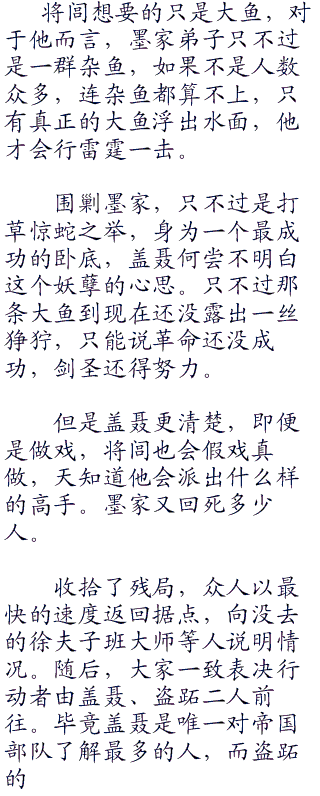 将闾想要的只是大鱼，对
于他而言，墨家弟子只不过
是一群杂鱼，如果不是人数
众多，连杂鱼都算不上，只
有真正的大鱼浮出水面，他
才会行雷霆一击。
围剿墨家，只不过是打
草惊蛇之举，身为一个最成
功的卧底，盖聂何尝不明白
这个妖孽的心思。只不过那
条大鱼到现在还没露出一丝
狰狞，只能说革命还没成
功，剑圣还得努力。
但是盖聂更清楚，即便
是做戏，将闾也会假戏真
做，天知道他会派出什么样
的高手。墨家又回死多少
人。
收拾了残局，众人以最
快的速度返回据点，向没去
的徐夫子班大师等人说明情
况。随后，大家一致表决行
动者由盖聂、盗跖二人前
往。毕竟盖聂是唯一对帝国
部队了解最多的人，而盗跖
的